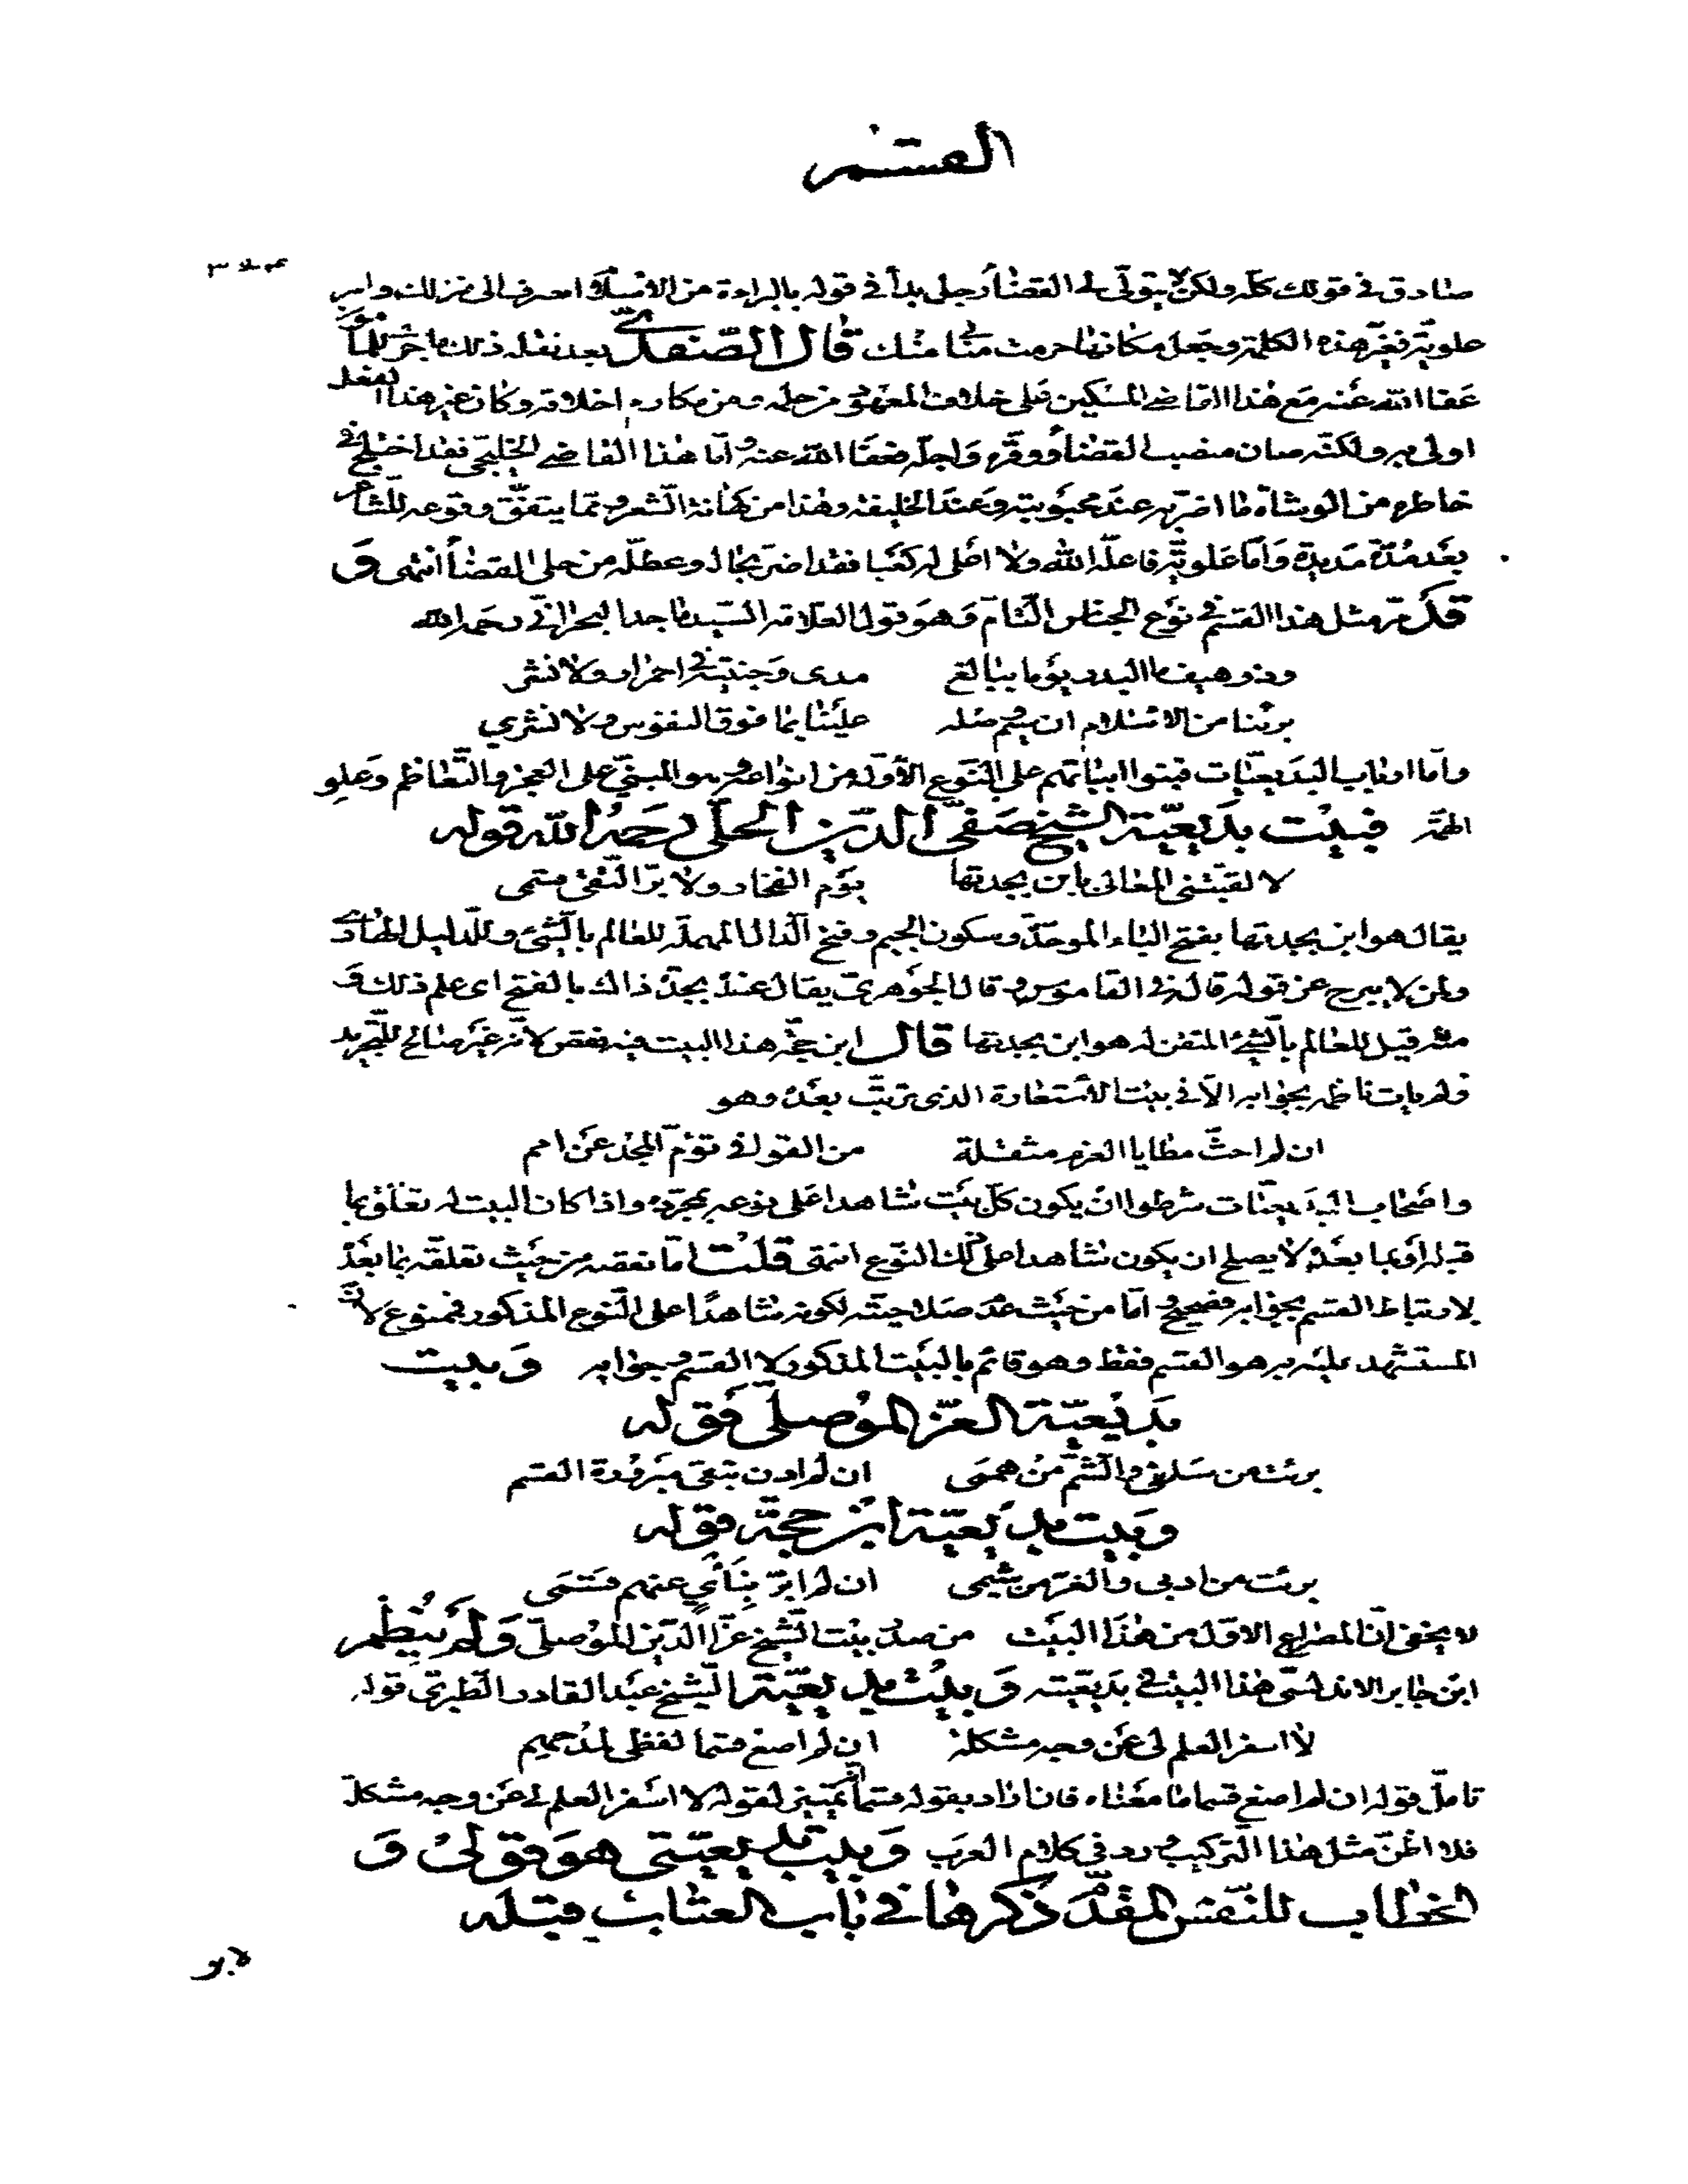 القسم
صادق في قولك كله ولكن لا يتولى لي القضاء رجل بدأ في قوله بالبراءة من الاسلام انصرف الى منزلك وامر
علوية فغير هذه الكلمة وجعل مكانها حرمت مناي منك قال الصفدي بعد نقله ذلك ما جرى للمأمون
عفا الله عنه مع هذا القاضي المسكين على خلاف المعهود من حلمه ومن مكارم اخلاقه وكان غير هذا الفعل
اولى به ولكنه صان منصب القضاء ووقره واجله فعفا الله عنه واما هذا القاضي الخليجي فقد اختلج في
خاطره من الوشاة ما اضر به عند محبوبته وعند الخليفة وهذا من كهانة الشعر ومما يتفق وقوعه للشاعر
بعد مدة مديدة واما علوية فما علّه الله ولا اعلى له كعبا فقد اضر بحاله وعطله من حلى القضاء انتهى و
قد مر مثل هذا القسم في نوع الجناس التام وهو قول العلامة السيد ماجد البحراني رحمه الله
وذو هيف ما البدر يوما ببالغ مدى وجنتيه في احمرار ولا نشر
برئنا من الاسلام ان سيم صله علينا بما فوق النفوس ولا نشري
واما ارباب البديعيات فبنوا ابياتهم على النوع الأول من انواعه وهو المبني على الفخر والتعاظم وعلو
الهمة فبيت بديعية الشيخ صفي الدين الحلي رحمه الله قوله
لا لقبتني المعالي بابن بجدتها يوم الفخار ولا بر التقى قسمى
يقال هو ابن بجدتها بفتح الباء الموحدة وسكون الجيم وفتح الدال المهملة للعالم بالشئ وللدليل الهادي
ولمن لا يبرح عن قوله قال في القاموس وقال الجوهري يقال عنده بجدة ذاك بالفتح اى علم ذلك و
منه قيل للعالم بالشئ المتقن له هو ابن بجدتها قال ابن حجة هذا البيت فيه نقص لانه غير صالح للتجريد
ولم يات ناظمه بجوابه الا في بيت الاستعارة الذى ترتب بعده وهو
ان لم احث مطايا العزم مثقلة من القوافي تؤم المجد عن امم
واصحاب البديعيات شرطوا ان يكون كل بيت شاهدا على نوعه بمجرده واذا كان البيت له تعلق بما
قبله او بما بعده لا يصلح ان يكون شاهدا على ذلك النوع انتهى قلت اما نقصه من حيث تعلقه بما بعده
لارتباط القسم بجوابه فصحيح واما من حيث عدم صلاحيته لكونه شاهدًا على النوع المذكور فممنوع لان
المستشهد عليه به هو القسم فقط وهو قائم بالبيت المذكور لا القسم وجوابه وبيت
بديعية العز الموصلي قوله
برئت من سلفي والشم من هممى ان لم ادن بتقى مبرورة القسم
وبيت بديعية ابن حجة قوله
برئت من ادبي والغر من شيمى ان لم ابر بنأي عنهم قسمى
لا يخفى ان المصراع الاول من هذا البيت من صدر بيت الشيخ عز الدين الموصلي ولم ينظم
ابن جابر الاندلسى هذا البيت في بديعيته وبيت بديعية الشيخ عبد القادر الطبري قوله
لا اسفر العلم لى عن وجه مشكلة ان لم اصغ قسما لفظى لمدحهم
تامل قوله ان لم اصغ قسما ما معناه فان اراد بقوله قسما تمييز لقوله لا اسفر العلم لى عن وجه مشكلة
فلا اظن مثل هذا التركيب ورد في كلام العرب وبيت بديعيتى هو قولى و
الخطاب للنفس المقدم ذكرها في باب العتاب قبله